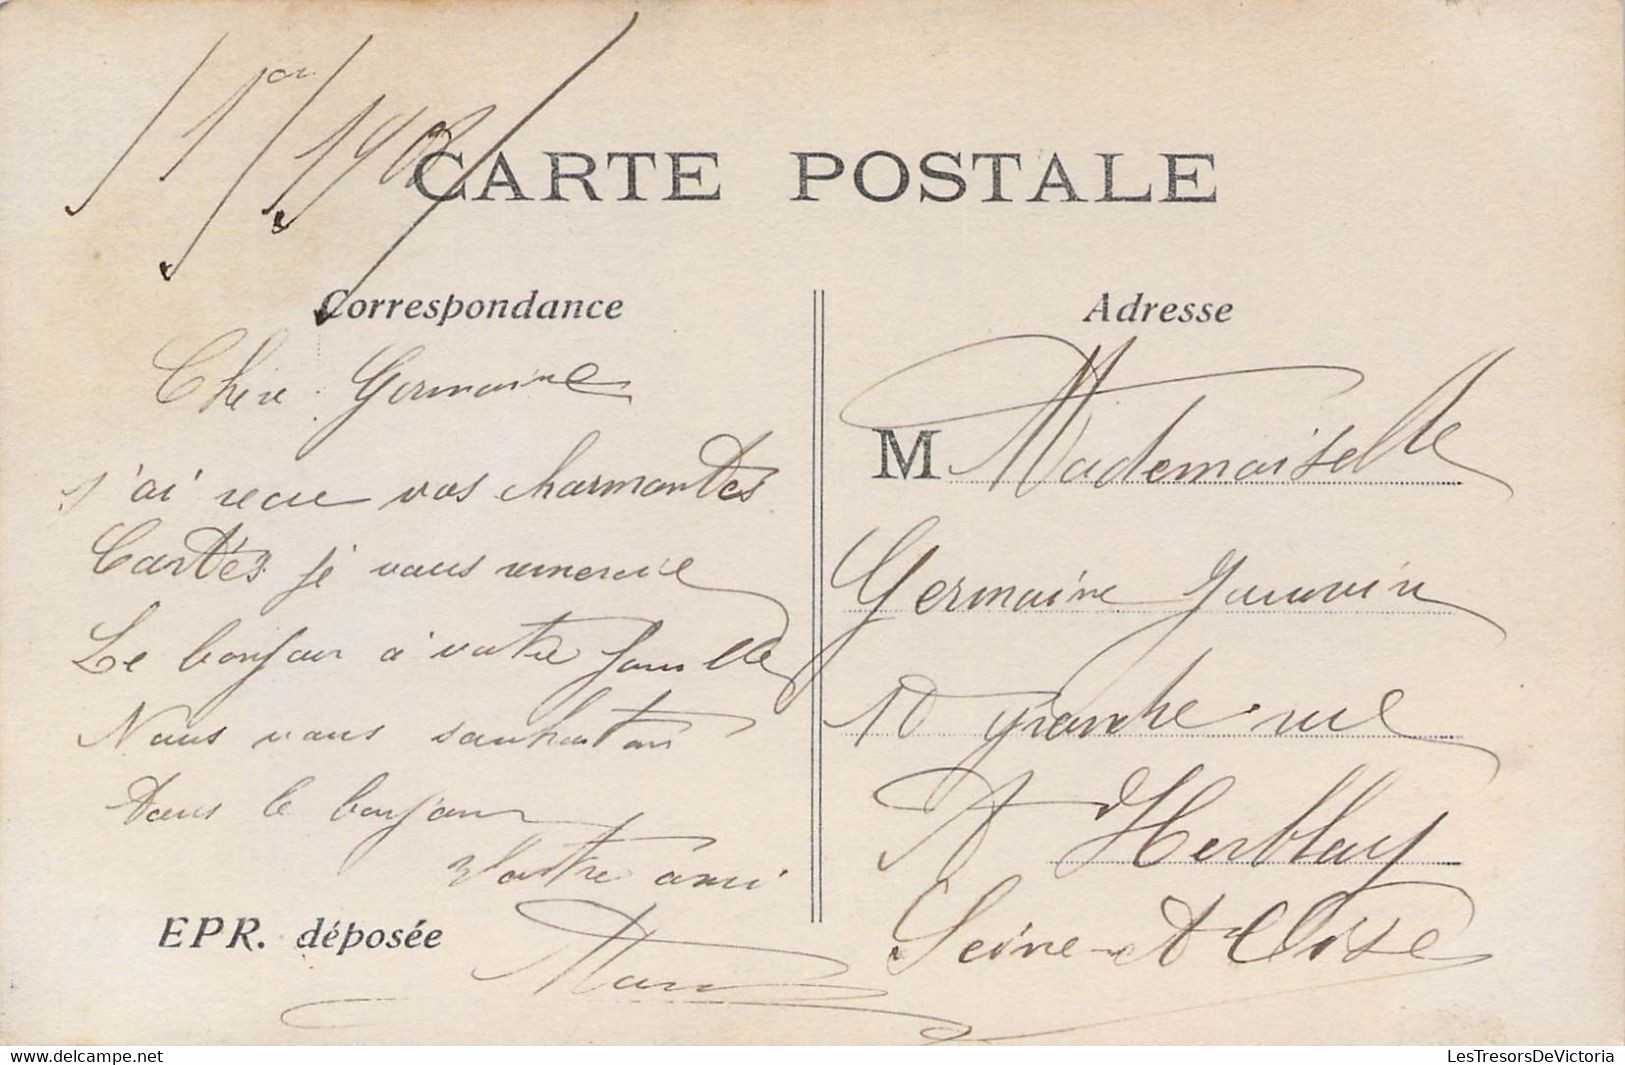 1er/190
CARTE POSTALE
Correspondance
Chère Germaine
j'ai recue vos charmantes
Cartes je vous remercie
Le bonjour a votre famille
Nous vous souhaitons
Tous le bonjour
Votre ami
EPR. déposée
Adresse
M Mademoiselle
Germaine Gauvin
10 grande rue
A Herblay
Seine et Oise
LesTresorsDeVictoria
delcampe.net